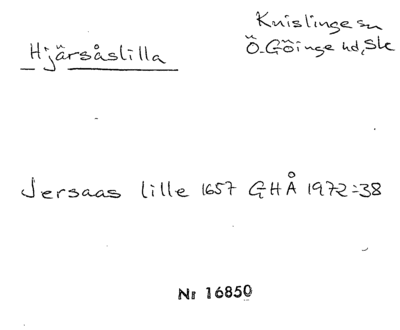 Knislinge sn
Hjärsåslilla
Ö. Göinge hd, Sk
Jersaas lille 1657 GHÅ 1972:38
Nr 16850